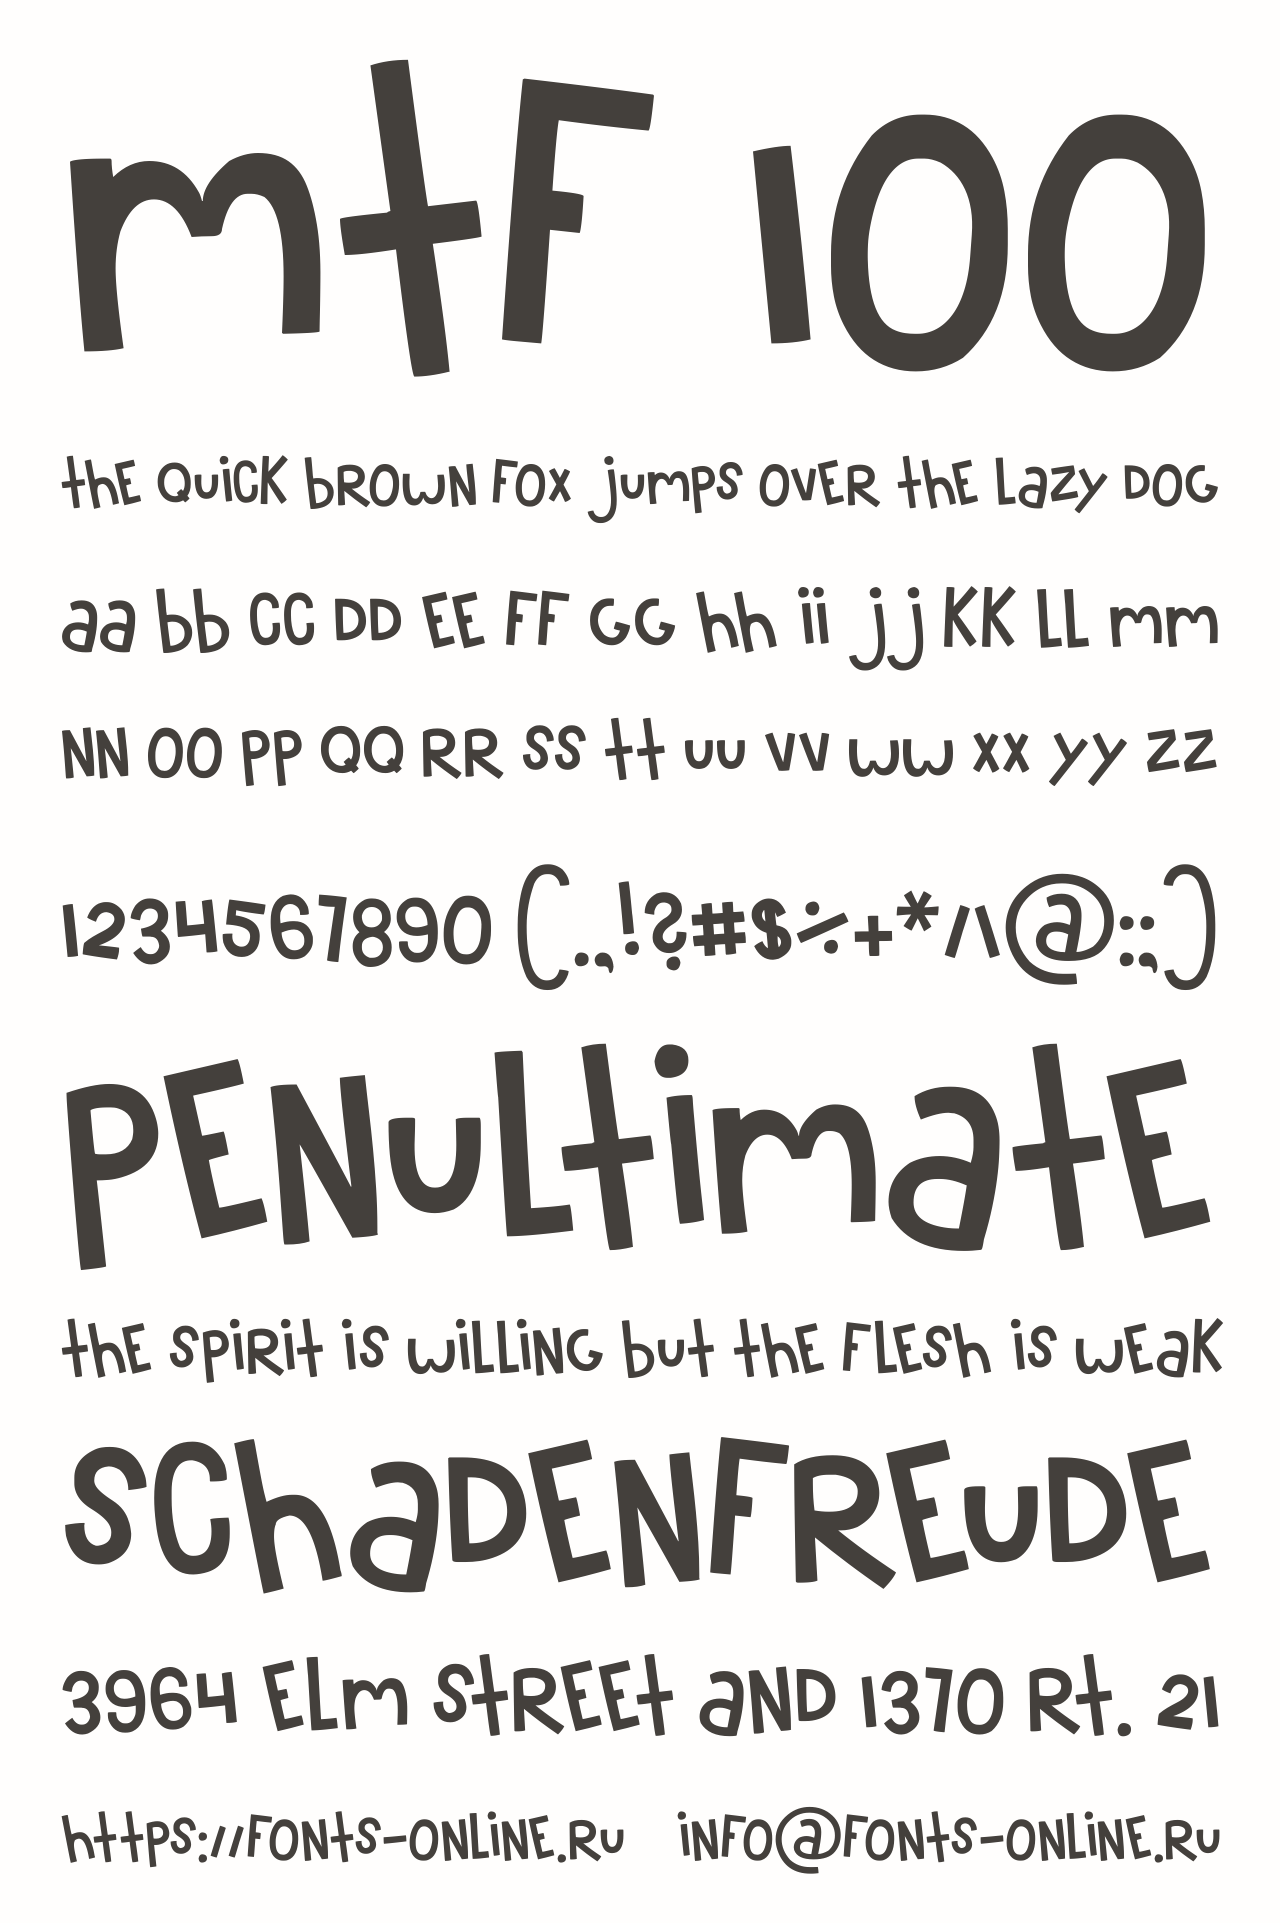 mtF 100
thE QuiCK bROWN FOX jumps OVER thE Lazy DOG
aa bb CC DD EE FF GG hh ii jj KK LL mm
NN OO PP QQ RR SS tt uu vv ww xx yy zz
1234567890 (.,!?#$÷+*/\@:;)
PENuLtimatE
thE spiRit is wiLLiNG but thE FLESh is wEaK
SChaDENFREuDE
3964 ELm StREEt aND 1370 Rt. 21
https://FONtS-ONLiNE.Ru iNFO@FONtS-ONLiNE.Ru